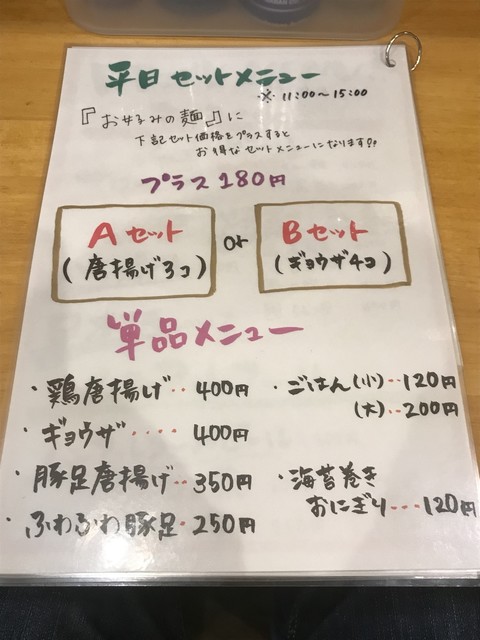 平日セットメニュー
※ 11:00～15:00
『お好みの麺』に
下記セット価格をプラスすると
お得なセットメニューになります!?
プラス180円
Aセット
(唐揚げ3コ)
or
Bセット
(ギョウザ4コ)
単品メニュー
・鶏唐揚げ‥400円
・ギョウザ‥‥400円
・豚足唐揚げ‥350円
・ふわふわ豚足・250円
・ごはん(小)‥120円
(大)‥200円
・海苔巻き
おにぎり…120円